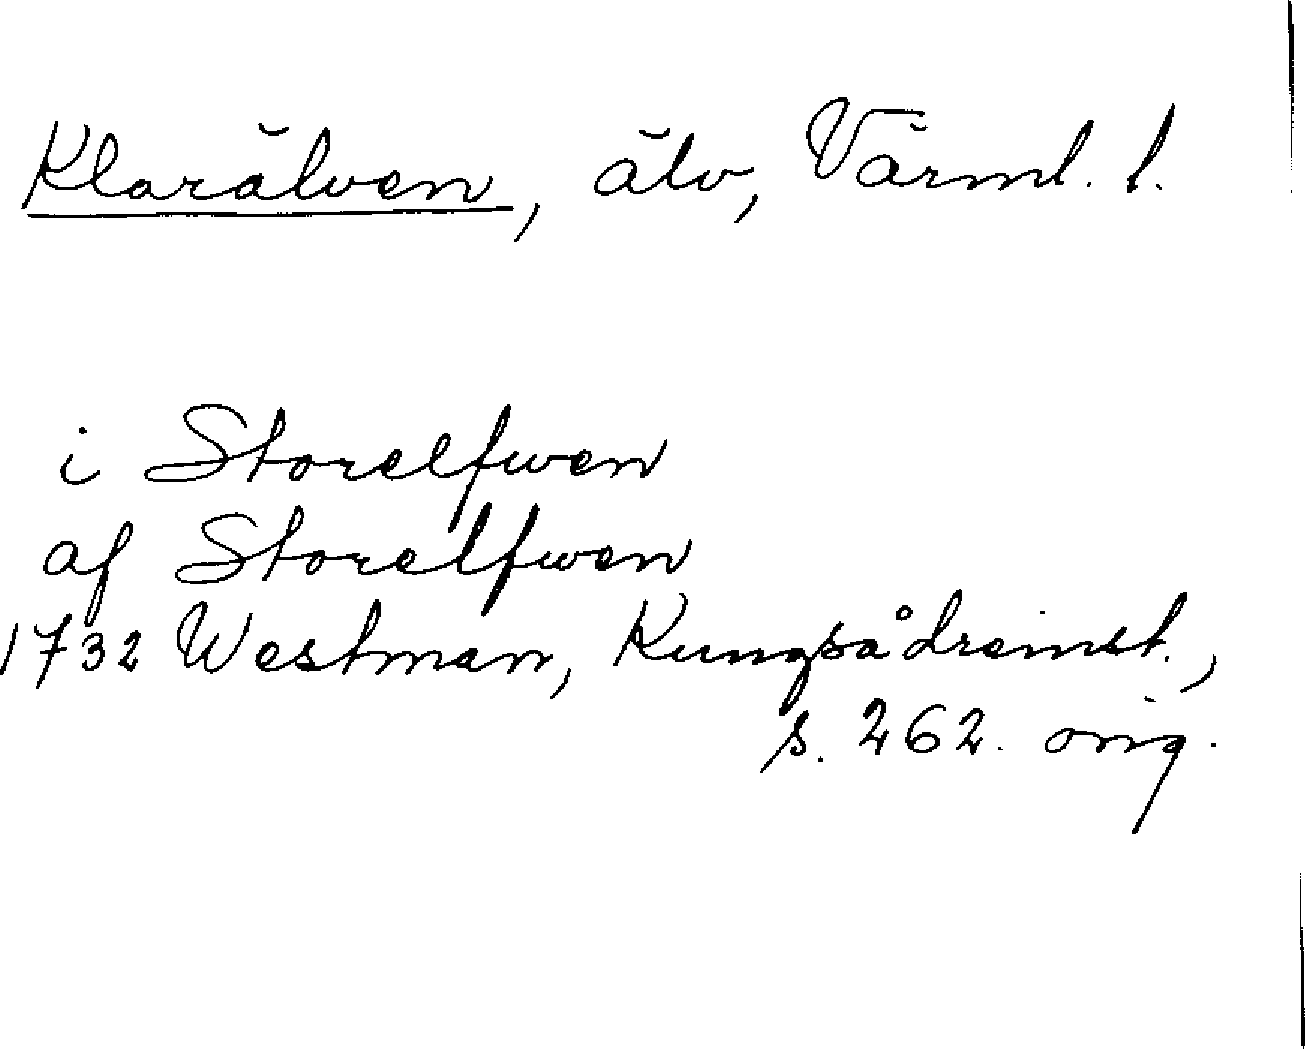 Klarälven, älv, Värml. l.
i Storelfwen
af Storelfwen
1732 Westman, Kungsådreinst.,
s. 262. orig.